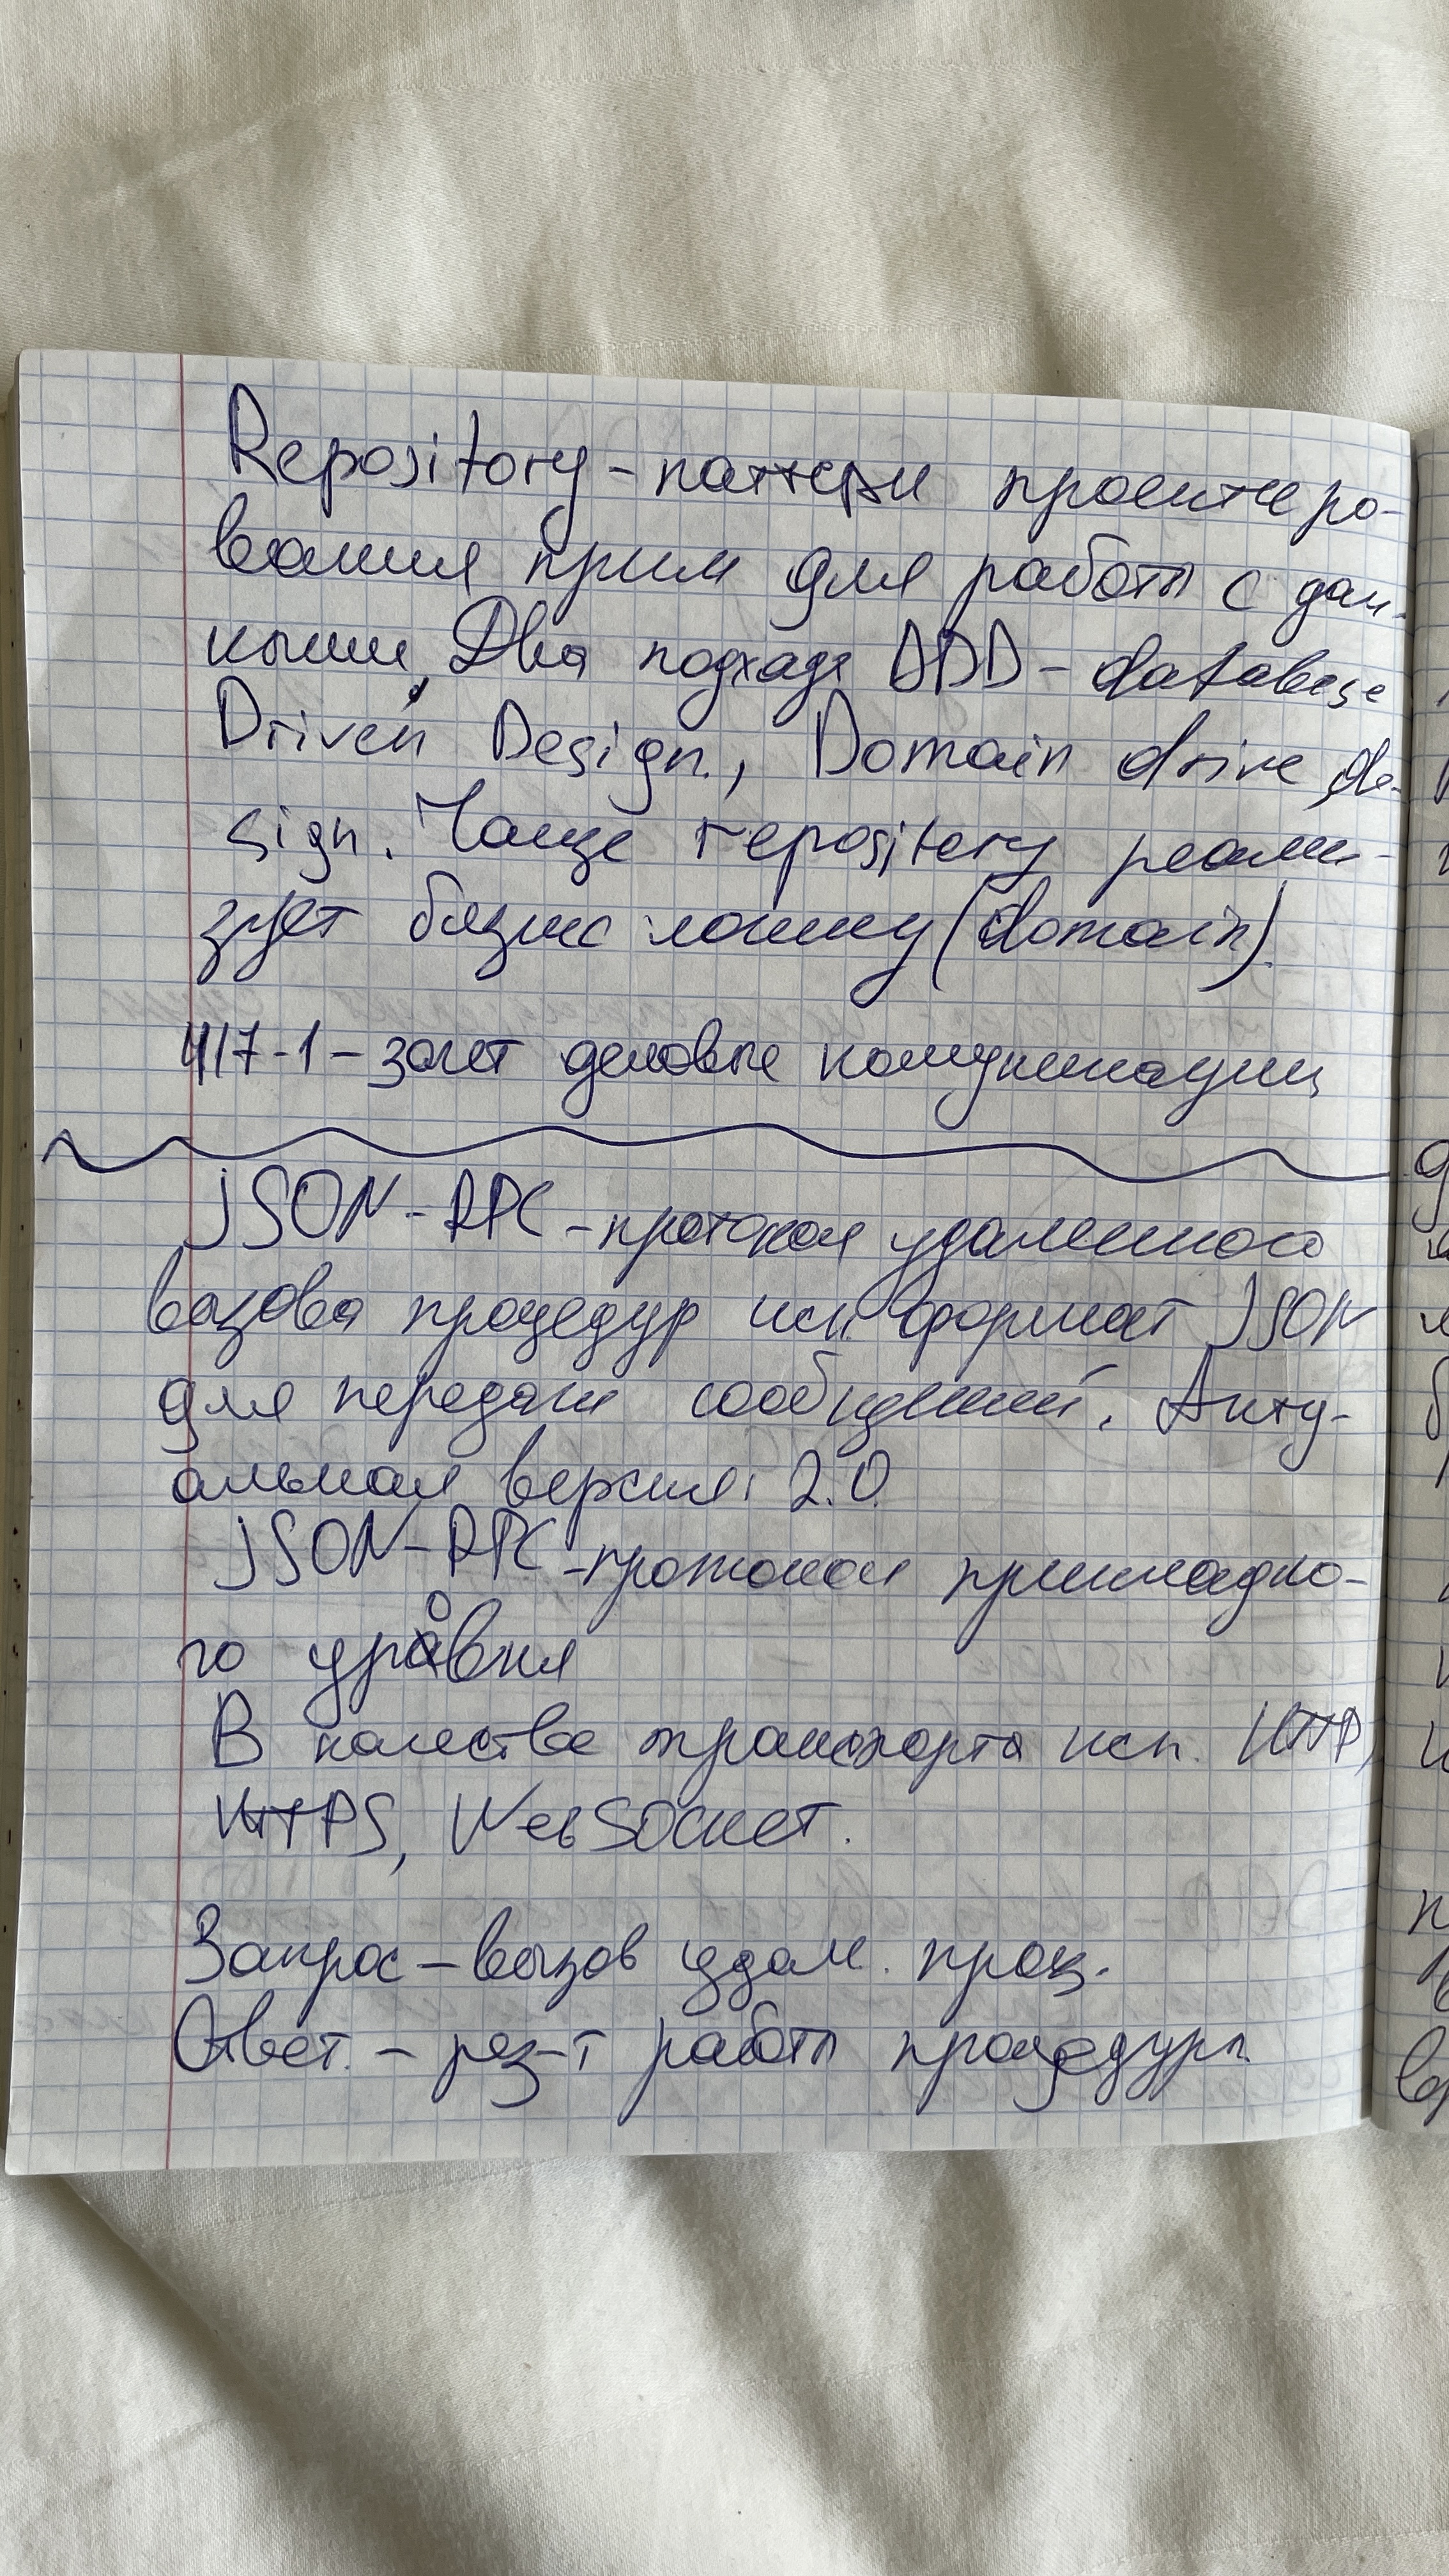 Repository - паттерн проектиро-
вания прим для работы с дан-
ными, Два подхода DDD - database
Driven Design, Domain drive de-
sign. Чаще repository реали-
зует бизнес логику (domain).
417-1 - зачет деловые комуникации
JSON-RPC - протокол удаленного
вызова процедур исп. формат JSON
для передачи сообщений. Акту-
альная версия: 2.0.
JSON-RPC - протокол прикладно-
го уровня
В качестве транспорта исп. HTTP,
HTTPS, WebSocket.
Запрос - вызов удал. проц.
Ответ. - рез-т работы процедуры.